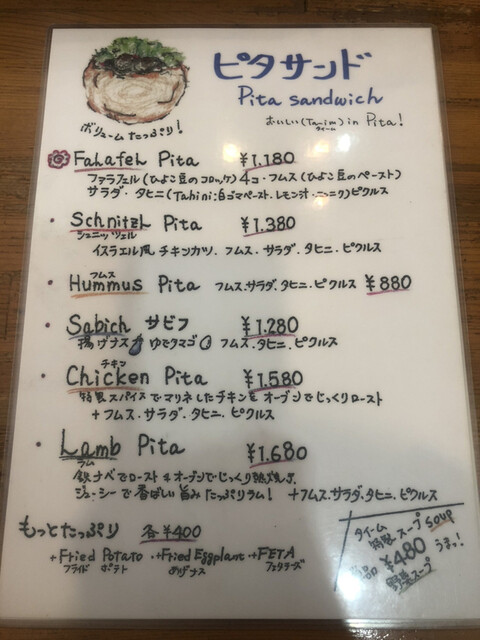 ピタサンド
Pita sandwich
ボリュームたっぷり!
おいしい(Taim) in Pita!
タイーム
Falafel Pita ¥1.180
ファラフェル(ひよこ豆のコロッケ)4コ・フムス(ひよこ豆のペースト)
サラダ・タヒニ(Tahini:白ゴマペースト.レモン汁・ニンニク)ピクルス
・Schnitzel Pita ¥1.380
シュニッツェル
イスラエル風チキンカツ.フムス.サラダ.タヒニ.ピクルス
フムス
・Hummus Pita フムス.サラダ.タヒニ.ピクルス ¥880
・Sabich サビフ ¥1.280
揚げナス ゆでタマゴ フムス.タヒニ.ピクルス
チキン
・Chicken Pita ¥1.580
特製スパイスでマリネしたチキンをオーブンでじっくりロースト
+フムス.サラダ.タヒニ.ピクルス
・Lamb Pita ¥1.680
ラム
鉄ナベでロースト オーブンでじっくり
ジューシーで香ばしい旨みたっぷりラム! +フムス.サラダ.タヒニ.ピクルス
もっとたっぷり 各¥400
+Fried Potato ・+Fried Eggplant ・+FETA
フライド ポテト あげナス フェタチーズ
タイーム
特製スープ soup
¥480 うまっ!
野菜スープ